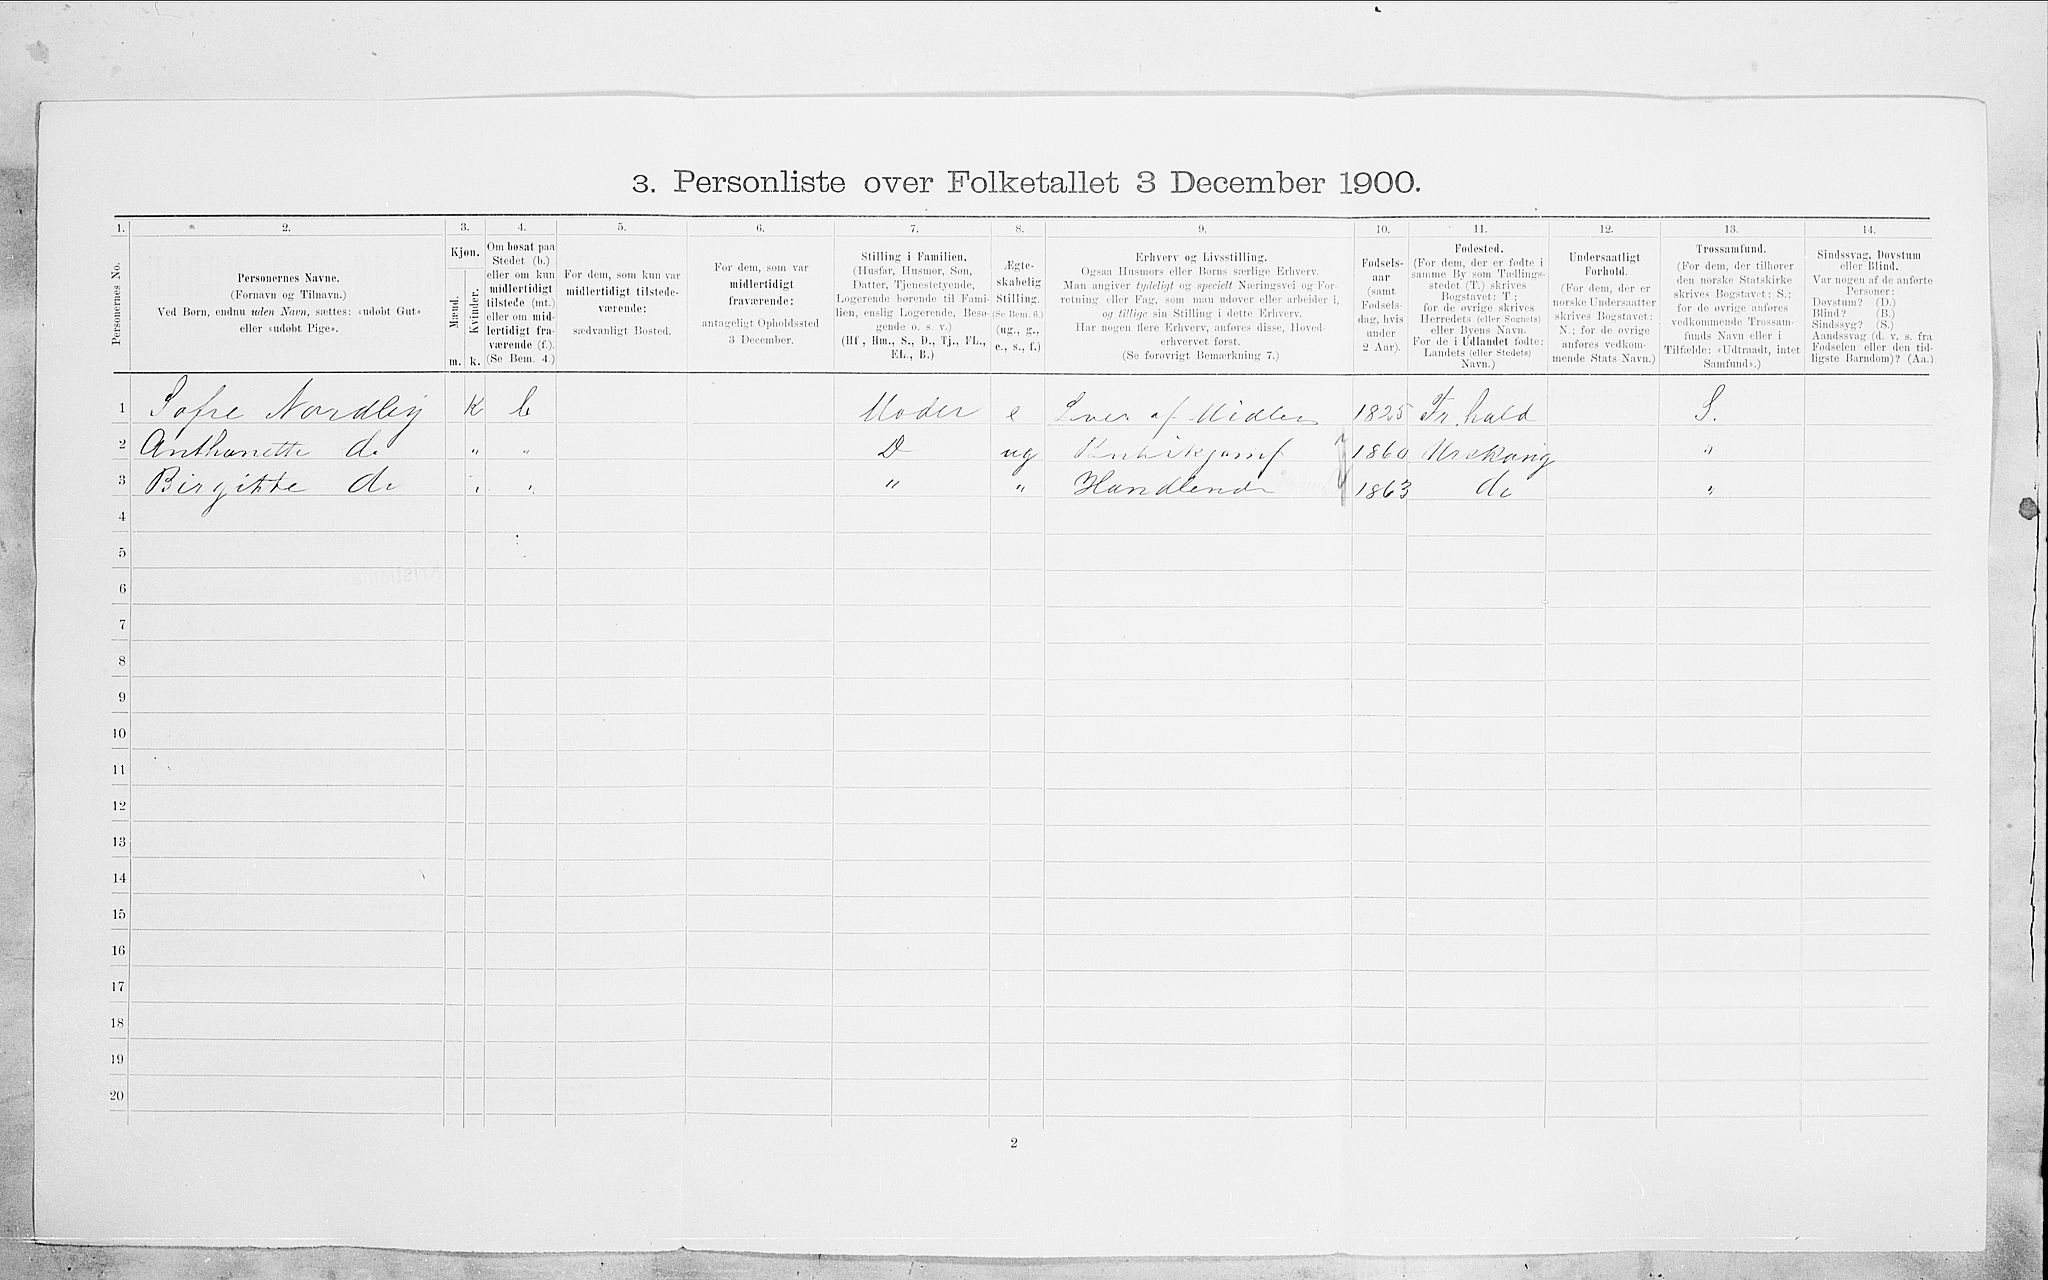 3. Personliste over Folketallet 3 December 1900.
1. 2. 3. 4. 5. 6. 7. 8. 9. 10. 11. 12. 13. 14.
Personernes No.
Personernes Navne.
(Fornavn og Tilnavn.)
Ved Børn, endnu uden Navn, sættes: «udøbt Gut»
eller «udøbt Pige».
Kjøn.
Mænd.
Kvinder.
m. k.
Om bosat paa
Stedet (b.)
eller om kun
midlertidigt
tilstede (mt.)
eller om mid-
lertidigt fra-
værende (f.).
(Se Bem. 4.)
For dem, som kun var
midlertidigt tilstede-
værende:
sædvanligt Bosted.
For dem, som var
midlertidigt
fraværende:
antageligt Opholdssted
3 December.
Stilling i Familien.
(Husfar, Husmor, Søn,
Datter, Tjenestetyende,
Logerende hørende til Fami-
lien, enslig Logerende, Besø-
gende o. s. v.)
(Hf, Hm., S., D., Tj., FL.,
EL., B.)
Ægte-
skabelig
Stilling.
(Se Bem. 6.)
(ug., g.,
e., s., f.)
Erhverv og Livsstilling.
Ogsaa Husmors eller Børns særlige Erhverv.
Man angiver tydeligt og specielt Næringsvei og For-
retning eller Fag, som man udøver eller arbeider i,
og tillige sin Stilling i dette Erhverv.
Har nogen flere Erhverv, anføres disse, Hoved-
erhvervet først.
(Se forøvrigt Bemærkning 7.)
Fødsels-
aar
(samt
Fødsels-
dag, hvis
under
2 Aar).
Fødested.
(For dem, der er fødte i
samme By som Tællings-
stedet (T.) skrives
Bogstavet: T;
for de øvrige skrives
Herredets (eller Sognets)
eller Byens Navn.
For de i Udlandet fødte:
Landets (eller Stedets)
Navn.)
Undersaatligt
Forhold.
(For dem, der er
norske Undersaatter
skrives Bogstavet:
N.; for de øvrige
anføres vedkom-
mende Stats Navn.)
Trossamfund.
(For dem, der tilhører
den norske Statskirke
skrives Bogstavet: S.;
for de øvrige anføres
vedkommende Trossam-
funds Navn eller i
Tilfælde: «Udtraadt, intet
Samfund».)
Sindssvag, Døvstum
eller Blind.
Var nogen af de anførte
Personer:
Døvstum? (D.)
Blind? (B.)
Sindssyg? (S.)
Aandssvag (d. v. s. fra
Fødselen eller den tid-
ligste Barndom)? (Aa.)
1 Sofie Nordlig K b Moder e Lever af Midler 1825 Fr.hald S.
2 Anthonette do " " D ug 1860 Urskoug "
3 Birgitte do " " " " Handlende 1863 do "
4
5
6
7
8
9
10
11
12
13
14
15
16
17
18
19
20
2